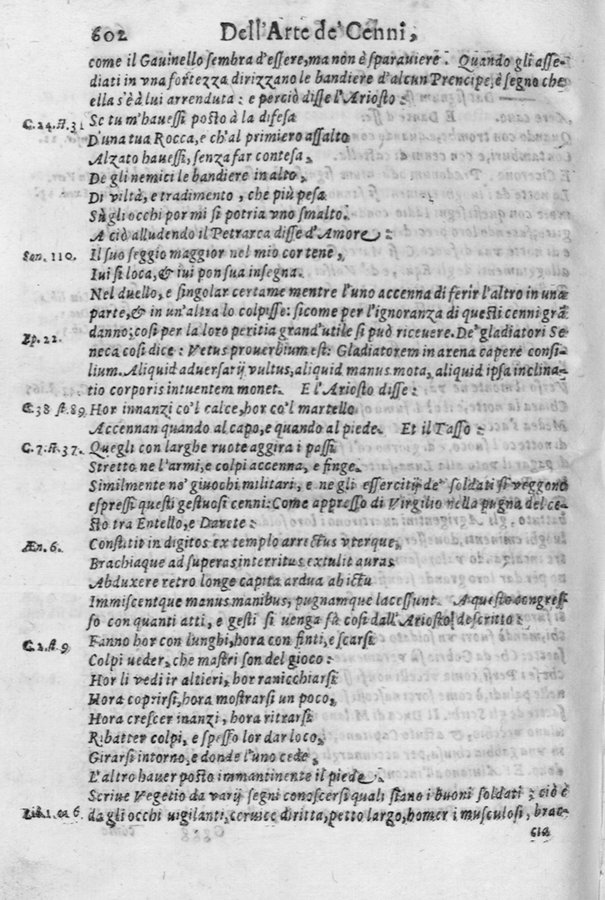 602 Dell'Arte de' Cenni,
come il Gavinello sembra d'essere, ma non è sparaviere. Quando gli asse-
diati in vna fortezza dirizzano le bandiere d'alcun Prencipe, è segno che
ella s'è à lui arrenduta: e perciò disse l'Ariosto:
C. 24. st. 31 Se tu m'hauessi posto à la difesa
D'una tua Rocca, e ch'al primiero assalto
Alzato hauessi, senza far contesa,
De gli nemici le bandiere in alto,
Di viltà, e tradimento, che più pesa
Sù gli occhi por mi si potria vno smalto.
A ciò alludendo il Petrarca disse d'Amore:
Son. 110. Il suo seggio maggior nel mio cor tene,
Iui si loca, & iui pon sua insegna.
Nel duello, e singolar certame mentre l'uno accenna di ferir l'altro in una
parte, & in un'altra lo colpisse: sicome per l'ignoranza di questi cenni grā
danno; così per la loro peritia grand'utile si può riceuere. De' gladiatori Se
Ep. 22. neca così dice: Vetus prouerbium est: Gladiatorem in arena capere consi-
lium. Aliquid aduersarij vultus, aliquid manus mota, aliquid ipsa inclina-
tio corporis intuentem monet. E l'Ariosto disse:
C. 38 st. 89. Hor innanzi co'l calce, hor co'l martello
Accennan quando al capo, e quando al piede. Et il Tasso:
C. 7. st. 37. Quegli con larghe ruote aggira i passi
Stretto ne l'armi, e colpi accenna, e finge.
Similmente ne' giuochi militari, e ne gli essercitij de' soldati si veggono
espressi questi gestuosi cenni: Come appresso di Virgilio nella pugna del ce-
sto tra Entello, e Darete:
Æn. 6. Constitit in digitos extemplo arrectus vterque,
Brachiaque ad superas interritus extulit auras
Abduxere retro longe capita ardua ab ictu
Immiscentque manus manibus, pugnamque lacessunt. A questo congres-
so con quanti atti, e gesti si uenga fù così dall'Ariosto descritto:
C. 2. st. 9 Fanno hor con lunghi, hora con finti, e scarsi
Colpi ueder, che mastri son del gioco:
Hor li vedi ir altieri, hor rannicchiarsi
Hora coprirsi, hora mostrarsi un poco,
Hora crescer inanzi, hora ritrarsi
Ribatter colpi, e spesso lor dar loco,
Girarsi intorno, e donde l'uno cede,
L'altro hauer posto immantinente il piede.
Scriue Vegetio da varij segni conoscersi quali siano i buoni soldati; ciò è
Lib. 1. ca 6. da gli occhi uigilanti, ceruice diritta, petto largo, homeri musculosi, brac-
cia